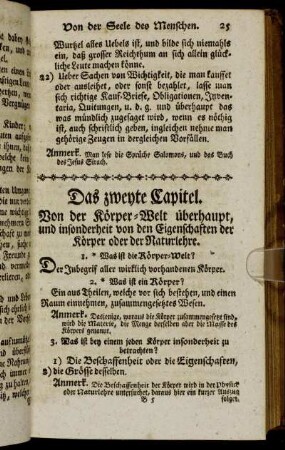 Von der Seele des Menschen. 25
Wurtzel alles Uebels ist, und bilde sich niemahls
ein, daß grosser Reichthum an sich allein glück-
liche Leute machen könne.
22) Ueber Sachen von Wichtigkeit, die man kauffet
oder ausleihet, oder sonst bezahlet, lasse man
sich richtige Kauf-Briefe, Obligationen, Inven-
taria, Quitungen, u. d. g. und überhaupt das
was mündlich zugesaget wird, wenn es nöthig
ist, auch schriftlich geben, ingleichen nehme man
gehörige Zeugen in dergleichen Vorfällen.
Anmerk. Man lese die Sprüche Salomons, und das Buch
des Jesus Sirach.
Das zweyte Capitel.
Von der Körper-Welt überhaupt,
und insonderheit von den Eigenschaften der
Körper oder der Naturlehre.
1. * Was ist die Körper-Welt?
Der Inbegrif aller wirklich vorhandenen Körper.
2. * Was ist ein Körper?
Ein aus Theilen, welche vor sich bestehen, und einen
Raum einnehmen, zusammengesetztes Wesen.
Anmerk. Dasjenige, woraus die Körper zusammengesetzt sind,
wird die Materie, die Menge derselben aber die Masse des
Körpers genennt.
3. Was ist bey einem jeden Körper insonderheit zu
betrachten?
1) Die Beschaffenheit oder die Eigenschaften,
2) die Grösse desselben.
Anmerk. Die Beschaffenheit der Körper wird in der Physick
oder Naturlehre untersuchet, daraus hier ein kurzer Auszug
B 5 folget.